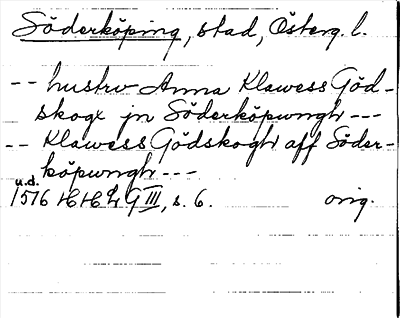 Söderköping, stad, Österg. l.
-- hustrv Anna Klawess Göd-
skogx jn Söderköpungh ---
-- Klawess Gödskogh aff Söder-
köpungh ---
u.d.
1576 HHL G III, s. 6. orig.